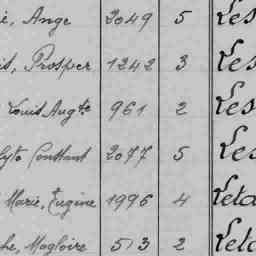 Ange 2049 5 Les
Prosper 1242 3 Les
Louis Augte 961 2 Les
Constant 2077 5 Les
Marie, Eugène 1996 4 Leta
Magloire 513 2 Leta